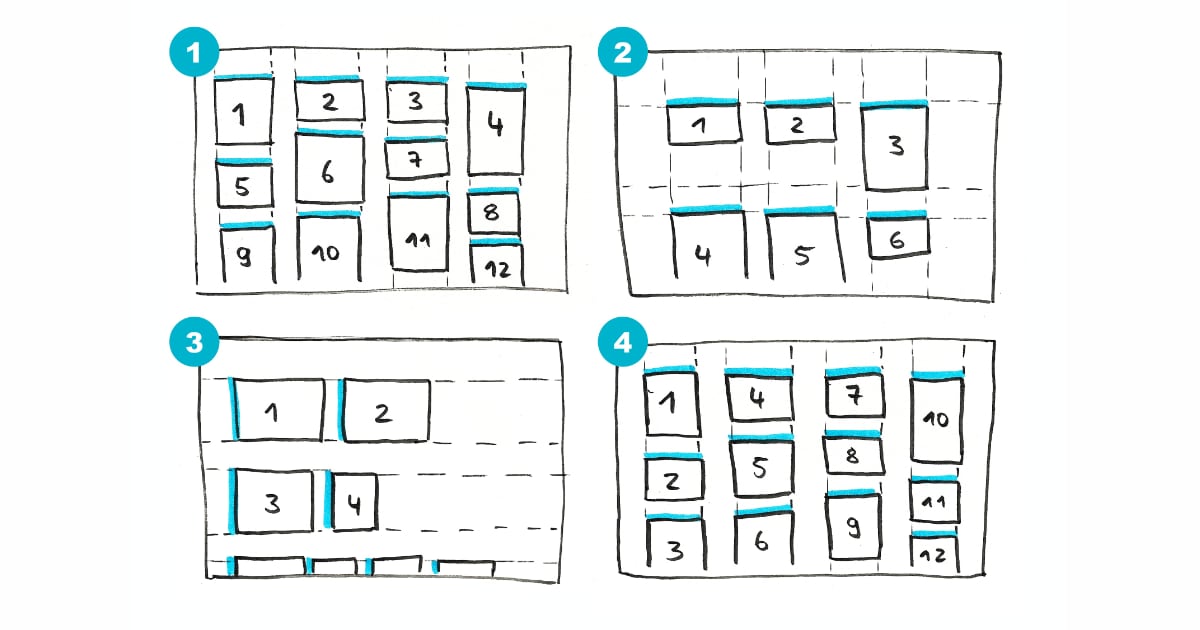 1
1 2 3 4
5 6 7 8
9 10 11 12
2
1 2 3
4 5 6
3
1 2
3 4
4
1 4 7 10
2 5 8 11
3 6 9 12